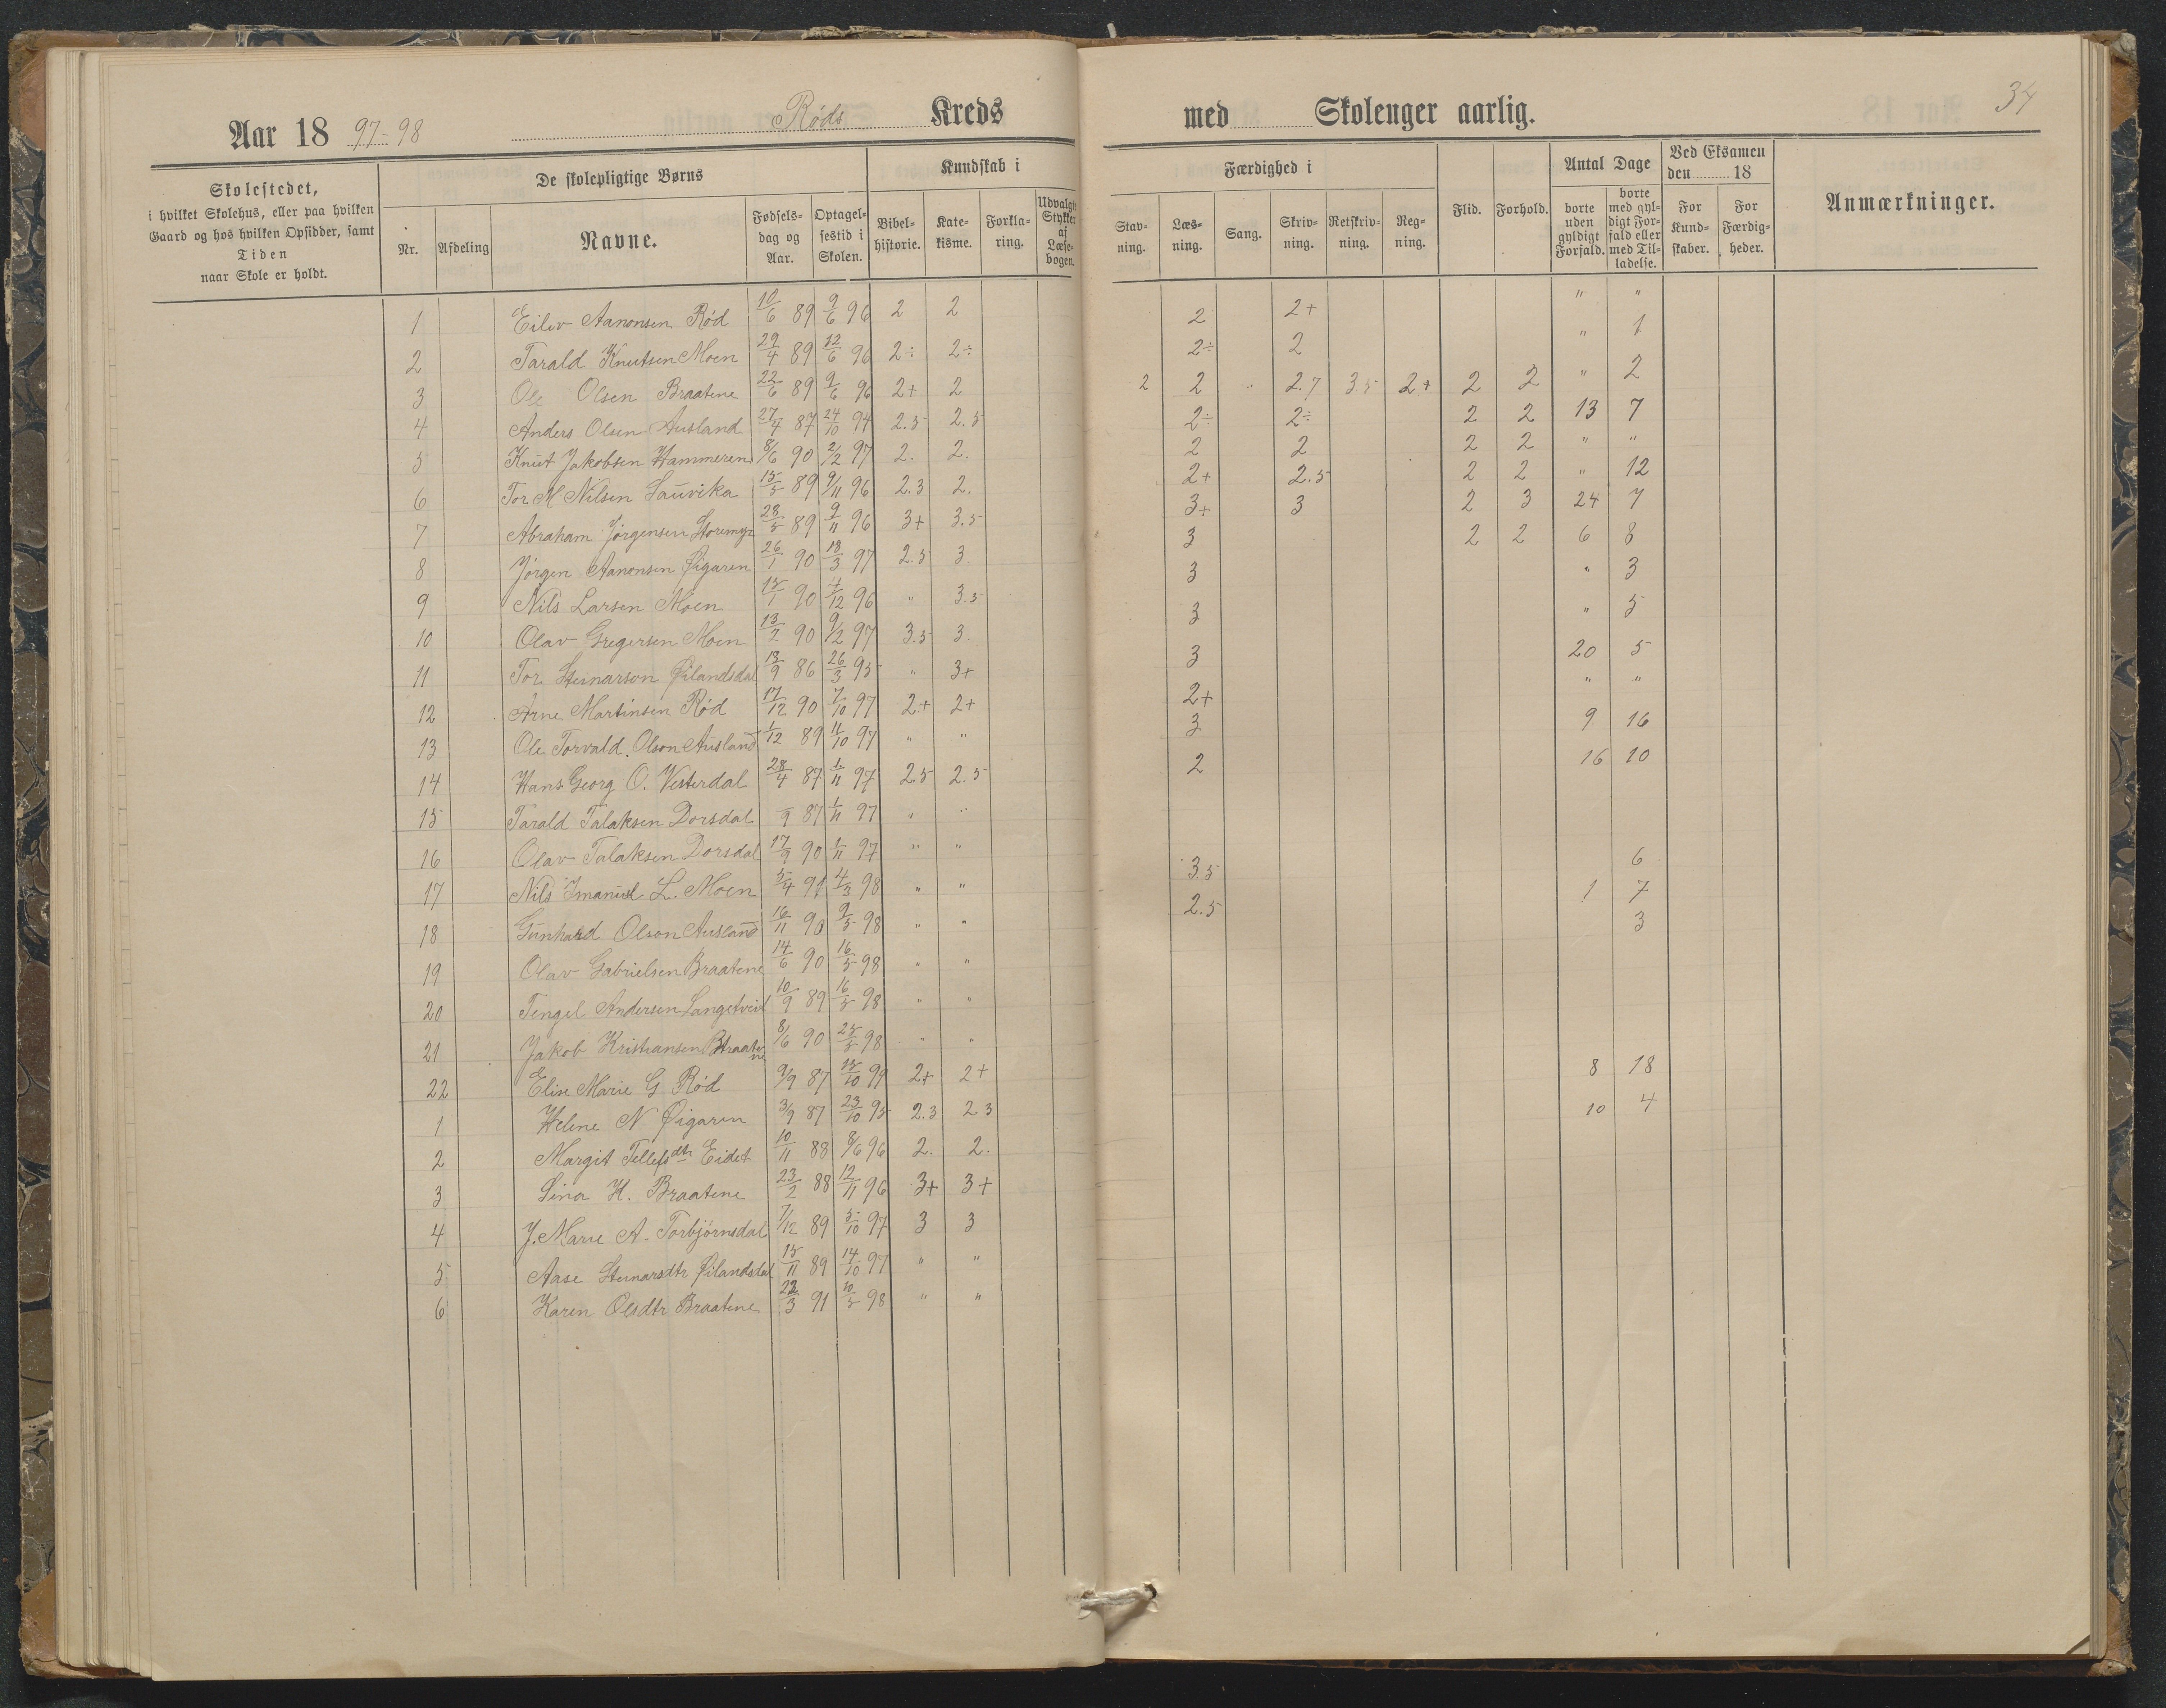 34
Aar 18 97-98 Røds Kreds med Skolenger aarlig.
Skolestedet,
i hvilket Skolehus, eller paa hvilken
Gaard og hos hvilken Opsidder, samt
Tiden
naar Skole er holdt.
De skolepligtige Børns
Nr. Afdeling Navne. Fødselsdag og Aar. Optagelsestid i Skolen.
Kundskab i
Bibelhistorie. Katekisme. Forklaring. Udvalgte Stykker af Læsebogen.
Færdighed i
Stavning. Læsning. Sang. Skrivning. Retskrivning. Regning.
Flid. Forhold.
Antal Dage
borte uden gyldigt Forfald. borte med gyldigt Forfald eller med Tilladelse.
Ved Eksamen den 18
For Kundskaber. For Færdigheder.
Anmærkninger.
1 Eilev Aanonsen Rød 10/6 89 9/6 96 2 2 2 2+ " "
2 Tarald Knutsen Moen 29/4 89 12/6 96 2÷ 2÷ 2÷ 2 " 1
3 Ole Olsen Braatene 22/6 89 9/6 96 2+ 2 2 2 " 2.7 3.5 2+ 2 2 " 2
4 Anders Olsen Ausland 27/4 87 24/10 94 2.5 2.5 2÷ 2÷ 2 2 13 7
5 Knut Jakobsen Hammeren 8/6 90 2/2 97 2. 2. 2 2 2 2 " "
6 Tor M Nilsen Sauvika 15/5 89 9/11 96 2.3 2. 2+ 2.5 2 2 " 12
7 Abraham Jørgensen Storemyr 28/5 89 9/11 96 3+ 3.5 3+ 3 2 3 24 7
8 Jørgen Aanonsen Øigaren 26/1 90 18/3 97 2.5 3 3 2 2 6 8
9 Nils Larsen Moen 15/1 90 4/12 96 " 3.5 3 " 3
10 Olav Gregersen Moen 13/2 90 9/2 97 3.5 3. 3 " 5
11 Tor Steinarson Øilandsdal 13/9 86 26/3 95 " 3+ 3 20 5
12 Arne Martinsen Rød 17/12 90 7/10 97 2+ 2+ 2+ " "
13 Ole Torvald Olson Ausland 1/12 89 11/10 97 " " 3 9 16
14 Hans Georg O. Vesterdal 28/4 87 1/11 97 2.5 2.5 2 16 10
15 Tarald Talaksen Dorsdal /9 87 1/11 97 " "
16 Olav Talaksen Dorsdal 17/9 90 1/11 97 " " 6
17 Nils Imanuel L. Moen 5/4 91 4/3 98 " " 3.5 1 7
18 Gunhard Olson Ausland 16/11 90 9/5 98 " " 2.5 3
19 Olav Gabrielsen Braatene 14/6 90 16/5 98 " "
20 Tengel Andersen Langetveit 10/9 89 16/5 98 " "
21 Jakob Kristiansen Braatene 8/6 90 25/5 98 " "
22 Elise Marie G Rød 9/9 87 15/10 99 2+ 2+ 8 18
1 Helene N Øigaren 3/9 87 23/10 95 2.3 2.3 10 4
2 Margit Tellefsdtr Eidet 10/11 88 8/6 96 2. 2.
3 Sina H. Braatene 23/2 88 12/11 96 3+ 3+
4 J. Marie A. Torbjørnsdal 7/12 89 5/10 97 3 3
5 Aase Steinarsdtr Øilandsdal 15/11 89 14/10 97 " "
6 Karen Olsdtr Braatene 22/3 91 10/5 98 " "